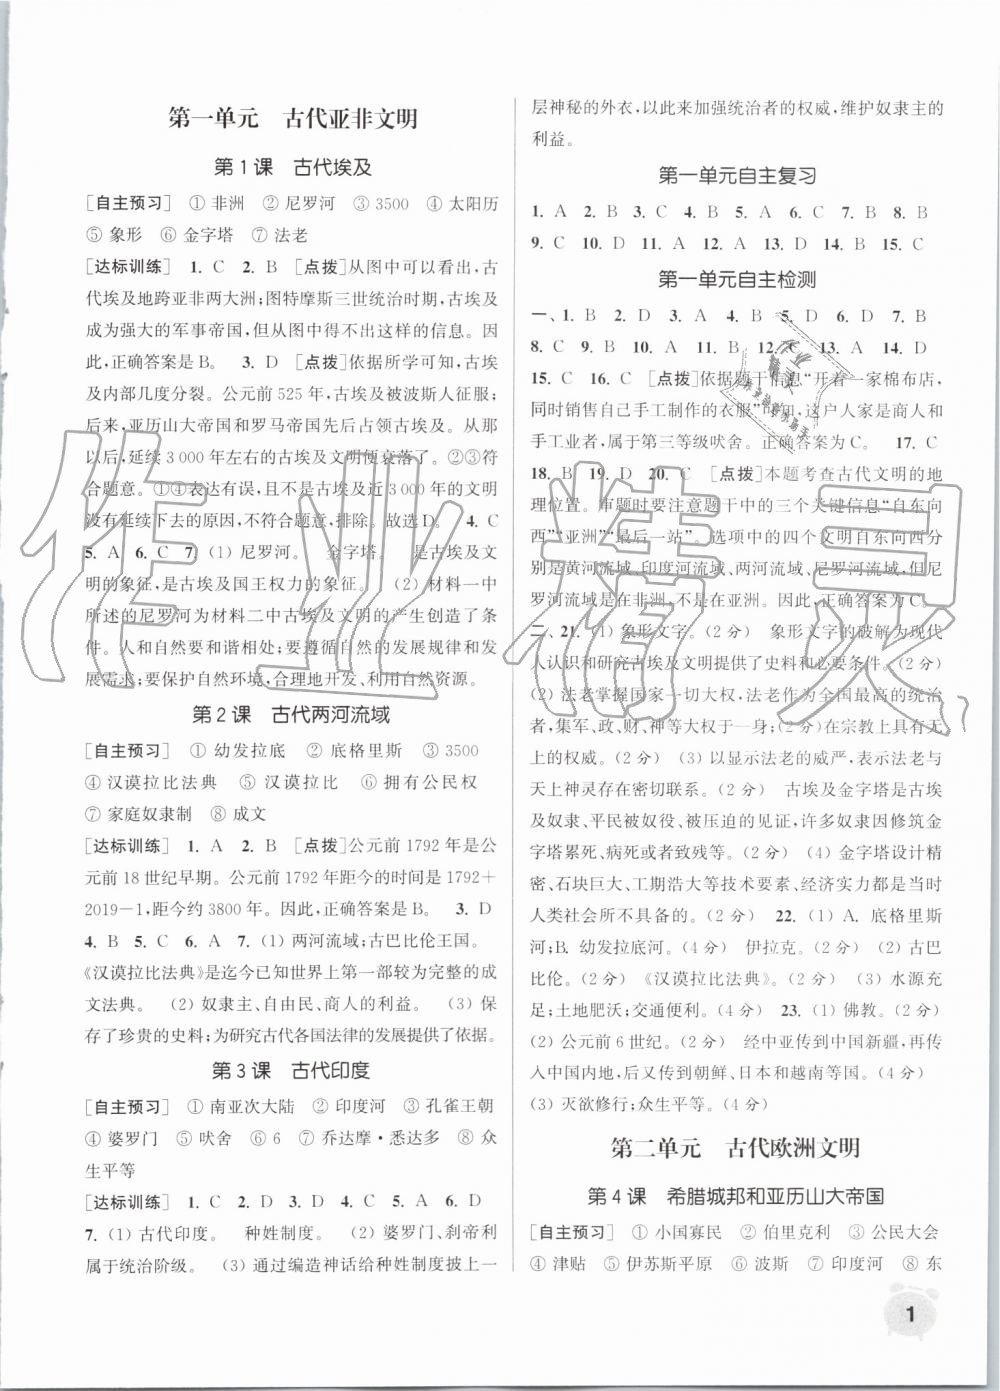 第一单元　古代亚非文明
第1课　古代埃及
[自主预习]　① 非洲　② 尼罗河　③ 3500　④ 太阳历
⑤ 象形　⑥ 金字塔　⑦ 法老
[达标训练]　1. C　2. B　[点拨]从图中可以看出,古
代埃及地跨亚非两大洲;图特摩斯三世统治时期,古埃及
成为强大的军事帝国,但从图中得不出这样的信息。因
此,正确答案是B。　3. D　[点拨]依据所学可知,古埃
及内部几度分裂。公元前 525 年,古埃及被波斯人征服;
后来,亚历山大帝国和罗马帝国先后占领古埃及。从那
以后,延续 3 000 年左右的古埃及文明便衰落了。②③符
合题意。①④表达有误,且不是古埃及近 3 000 年的文明
没有延续下去的原因,不符合题意,排除。故选D。　4. C
5. A　6. C　7. (1) 尼罗河。　金字塔。　是古埃及文
明的象征,是古埃及国王权力的象征。　(2) 材料一中
所述的尼罗河为材料二中古埃及文明的产生创造了条
件。人和自然要和谐相处;要遵循自然的发展规律和发
展需求;要保护自然环境,合理地开发、利用自然资源。
第2课　古代两河流域
[自主预习]　① 幼发拉底　② 底格里斯　③ 3500
④ 汉谟拉比法典　⑤ 汉谟拉比　⑥ 拥有公民权
⑦ 家庭奴隶制　⑧ 成文
[达标训练]　1. A　2. B　[点拨]公元前 1792 年是公
元前 18 世纪早期。公元前 1792 年距今的时间是 1792+
2019-1,距今约 3800 年。因此,正确答案是B。　3. D
4. B　5. C　6. A　7. (1) 两河流域;古巴比伦王国。
《汉谟拉比法典》是迄今已知世界上第一部较为完整的成
文法典。　(2) 奴隶主、自由民、商人的利益。　(3) 保
存了珍贵的史料;为研究古代各国法律的发展提供了依据。
第3课　古代印度
[自主预习]　① 南亚次大陆　② 印度河　③ 孔雀王朝
④ 婆罗门　⑤ 吠舍　⑥ 6　⑦ 乔达摩·悉达多　⑧ 众
生平等
[达标训练]　1. C　2. D　3. D　4. C　5. A　6. D
7. (1) 古代印度。　种姓制度。　(2) 婆罗门、刹帝利
属于统治阶级。　(3) 通过编造神话给种姓制度披上一
层神秘的外衣,以此来加强统治者的权威,维护奴隶主的
利益。
第一单元自主复习
1. A　2. B　3. C　4. B　5. A　6. D　7. B　8. B
9. C　10. D　11. D　12. A　13. D　14. B　15. C
第一单元自主检测
一、1. B　2. D　3. A　4. B　5. D　6. D　7. B
8. C　9. C　10. A　11. B　12. C　13. A　14. D
15. C　16. C　[点拨]依据题干信息“开着一家棉布店,
同时销售自己手工制作的衣服”可知,这户人家是商人和
手工业者,属于第三等级吠舍。正确答案为C。　17. C
18. B　19. D　20. C　[点拨]本题考查古代文明的地
理位置。审题时要注意题干中的三个关键信息“自东向
西”“亚洲”“最后一站”。选项中的四个文明自东向西分
别是黄河流域、印度河流域、两河流域、尼罗河流域,但尼
罗河流域是在非洲,不是在亚洲。因此,正确答案为C。
二、21. (1) 象形文字。(2 分)　象形文字的破解为现代
人认识和研究古埃及文明提供了史料和必要条件。(2分)
(2) 法老掌握国家一切大权,法老作为全国最高的统治
者,集军、政、财、神等大权于一身;(2 分)在宗教上具有无
上的权力。(2 分)　(3) 以显示法老的威严,表示法老与
天上神灵存在密切联系。(2 分)　古埃及金字塔是古埃
及奴隶、平民被奴役、被压迫的见证,许多奴隶因修筑金
字塔累死、病死或者致残等。(2 分)　(4) 金字塔设计精
密、石块巨大、工期浩大等技术要素、经济实力都是当时
人类社会所不具备的。(2 分)　22. (1) A. 底格里斯
河;B. 幼发拉底河。(4 分)　伊拉克。(2 分)　(2) 古巴
比伦。(2 分)　《汉谟拉比法典》。(2 分)　(3) 水源充
足;土地肥沃;交通便利。(2 分)　23. (1) 佛教。(2 分)
(2) 公元前 6 世纪。(2 分)　经中亚传到中国新疆,再传
入中国内地,后又传到朝鲜、日本和越南等国。(2 分)
(3) 灭欲修行;众生平等。(4 分)
第二单元　古代欧洲文明
第4课　希腊城邦和亚历山大帝国
[自主预习]　① 小国寡民　② 伯里克利　③ 公民大会
④ 津贴　⑤ 伊苏斯平原　⑥ 波斯　⑦ 印度河　⑧ 东
1
作业精灵